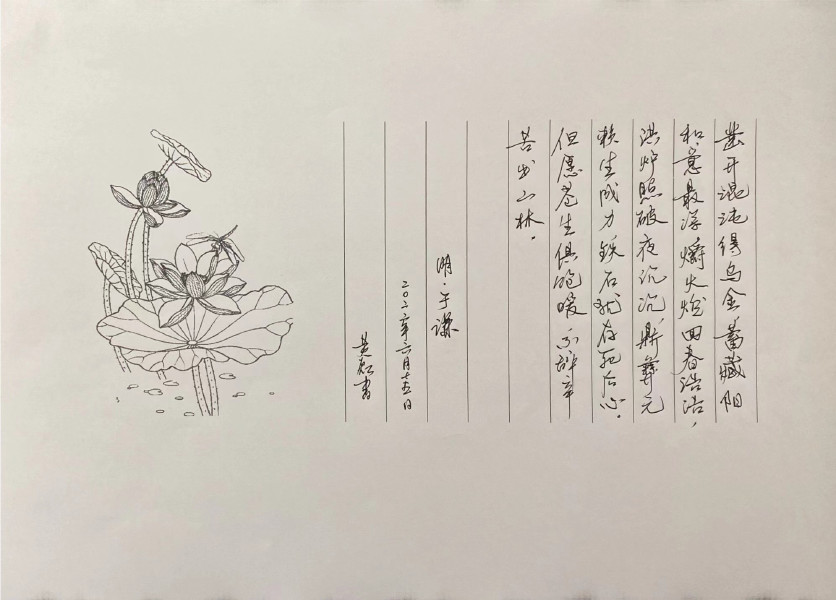 凿开混沌得乌金，蓄藏阳
和意最深，爝火燃回春浩浩，
洪炉照破夜沉沉，鼎彝元
赖生成力，铁石犹存死后心。
但愿苍生俱饱暖，不辞辛
苦出山林。
明·于谦
年六月十五日
书